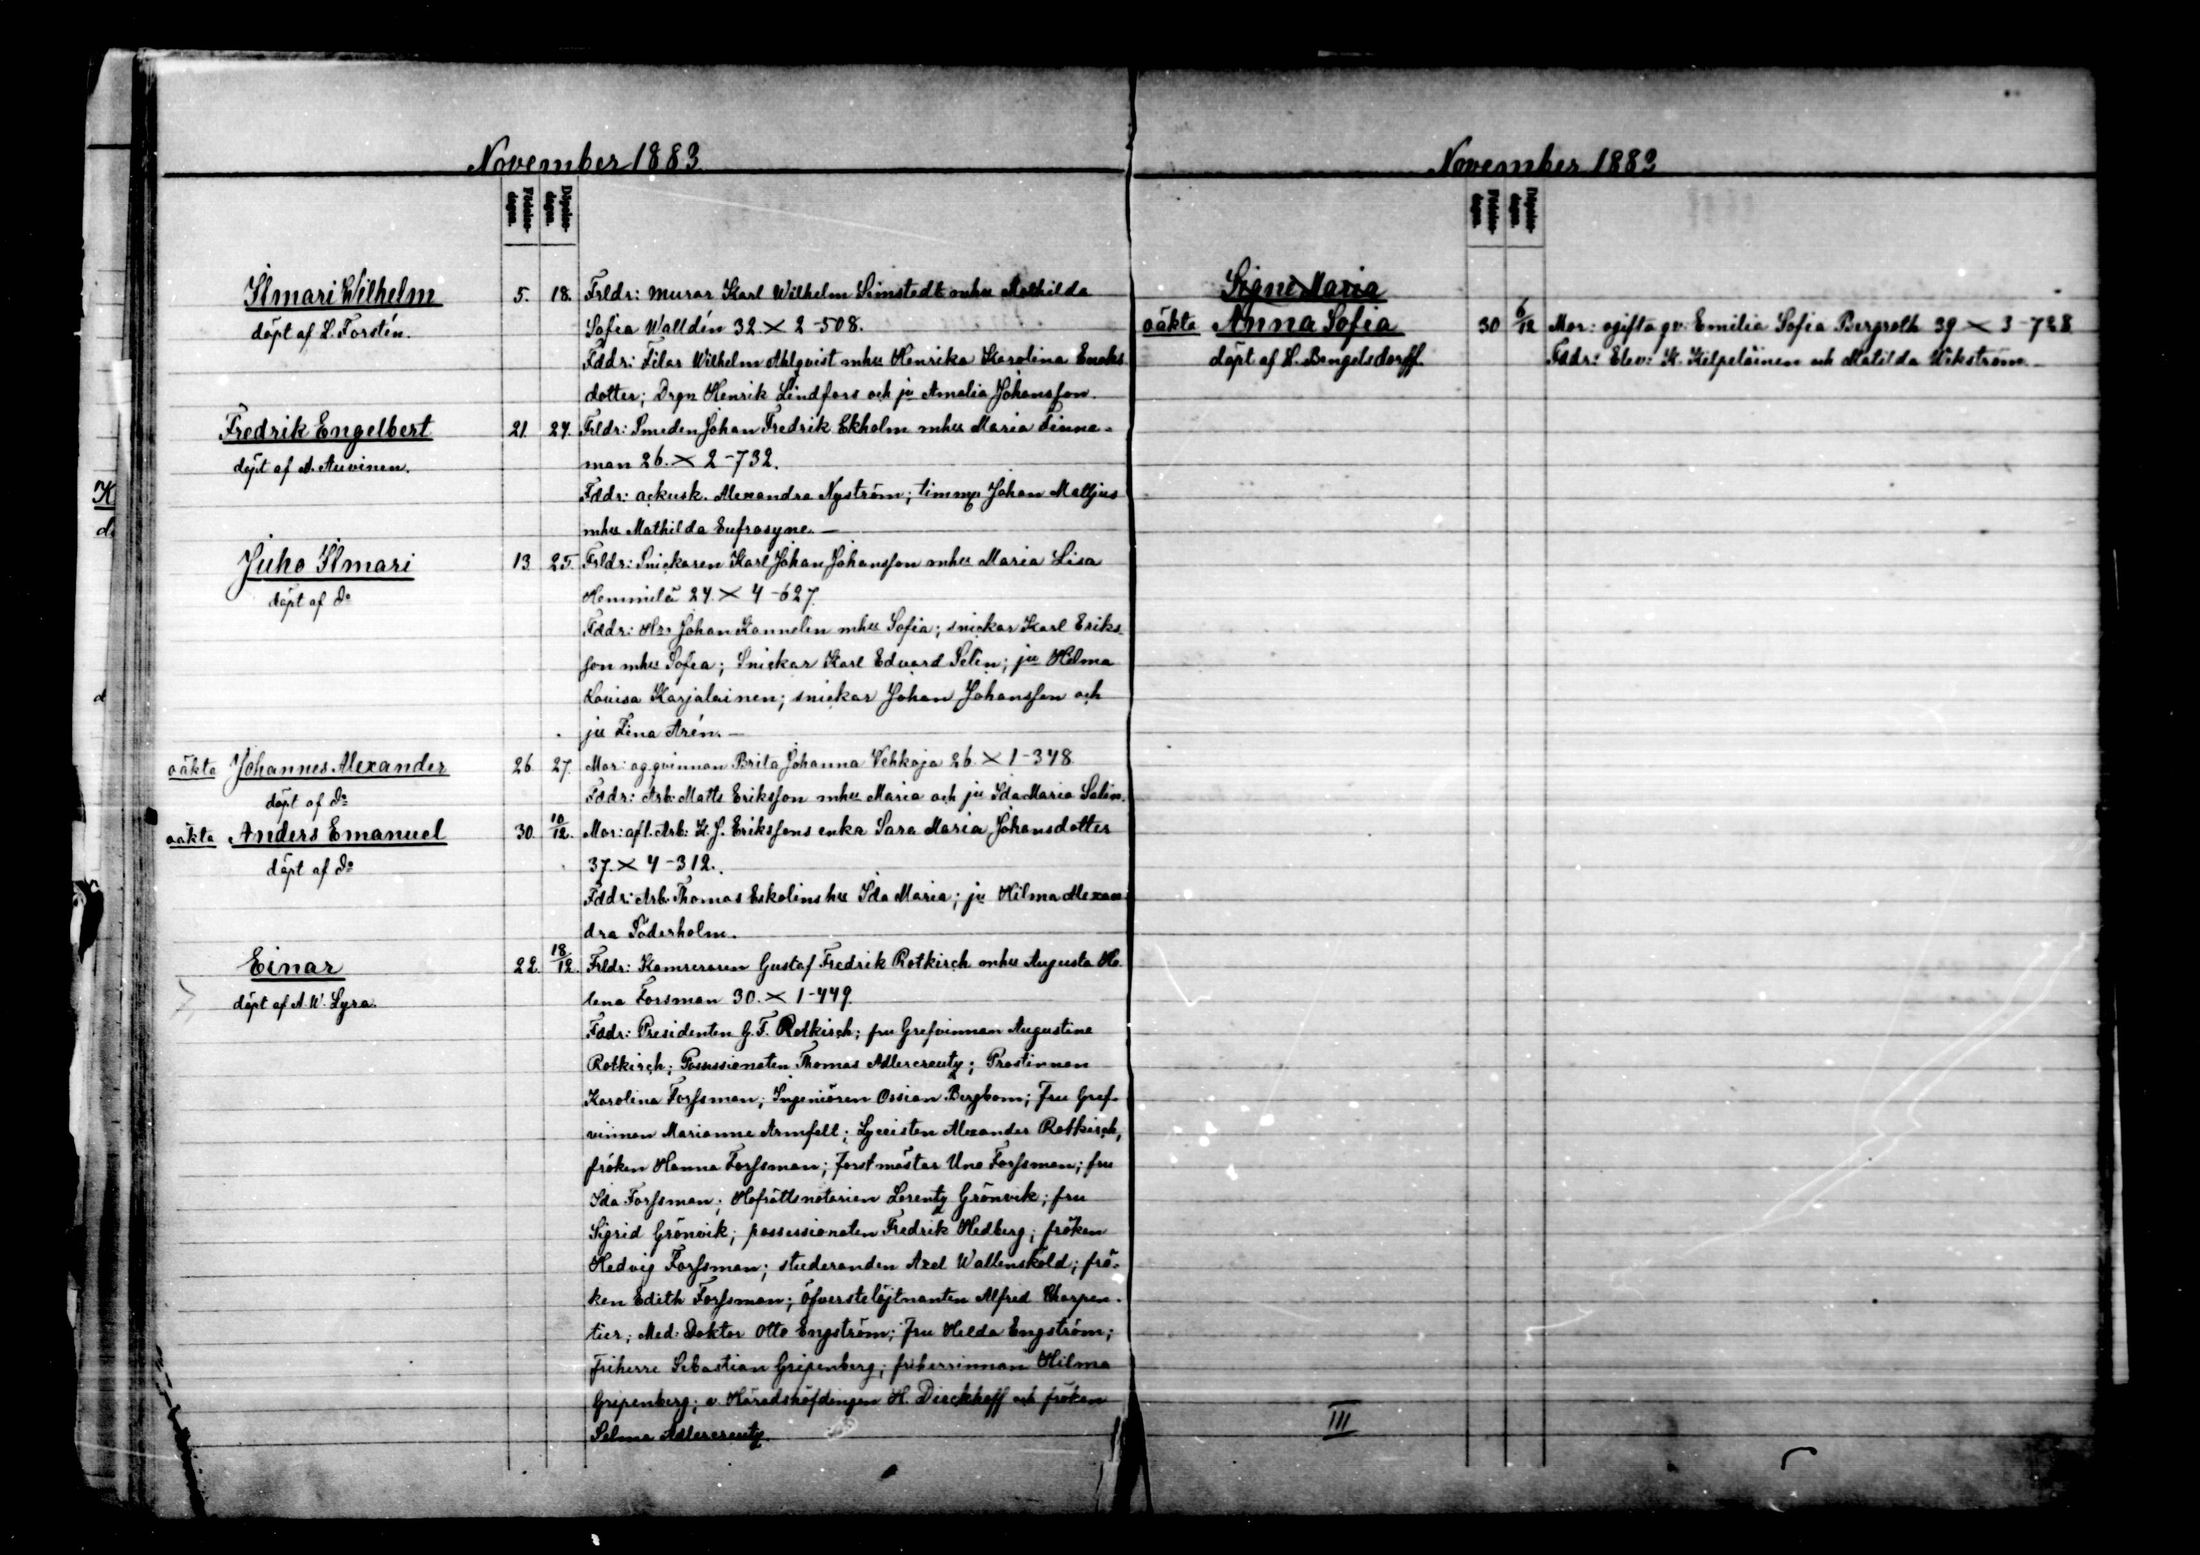 November 1883
Födelse-
dagen.
Döpelse-
dagen.
Ilmari Wilhelm 5. 18. Frldr: murar Karl Wilhelm Simstedt mhu Mathilda
döpt af L. Forstén. Sofia Walldén 32. × 2-508.
Fddr: Filar Wilhelm Ahlqvist mhu Henrika Karolina Enoks
dotter; Drgn Henrik Lindfors och ju Amalia Johansson.
Fredrik Engelbert 21. 24. Frldr: Smeden Johan Fredrik Ekholm mhu Maria Finne-
döpt af A. Auvinen. man 26. × 2-732.
Fddr: ackusk. Alexandra Nyström; timmn Johan Malljus
mhu Mathilda Eufrosyne. —
Juho Ilmari 13. 25. Frldr: Snickaren Karl Johan Johansson mhu Maria Lisa
döpt af do Hemmilä 24. × 4-627.
Fddr: Johan Kannelin mhu Sofia; snickar Karl Eriks-
son mhu Sofia; Snickar Karl Edvard Selin; ju Hilma
Lovisa Karjalainen; snickar Johan Johansson och
ju Lina Arén. —
oäkta Johannes Alexander 26. 27. Mor: og. qvinnan Brita Johanna Vehkaja 26. × 1-348
döpt af do Fddr: Arb: Matts Eriksson mhu Maria och ju Ida Maria Salin.
oäkta Anders Emanuel 30. 10/12. Mor: afl. Arb: K. J. Erikssons enka Sara Maria Johansdotter
döpt af do 37. × 4-312.
Fddr: Arb: Thomas Eskolins hu Ida Maria; ju Hilma Alexan-
dra Söderholm.
Einar 22. 18/12. Frldr: Kamreraren Gustaf Fredrik Rotkirch mhu Augusta He-
döpt af A. W. Lyra. lena Forsman 30. × 1-449.
Fddr: Presidenten G. F. Rotkirch; fru Grefvinnan Augustine
Rotkirch; Possessionaten Thomas Adlercreutz; Prostinnan
Karolina Forssman; Ingeniören Ossian Bergbom; fru Gref-
vinnan Marianne Armfelt; Lyceisten Alexander Rotkirch,
fröken Hanna Forssman; Forstmästar Uno Forssman; fru
Ida Forssman; Hofrättsnotarien Lorentz Grönvik; fru
Sigrid Grönvik; possessionaten Fredrik Hedberg; fröken
Hedvig Forssman; studeranden Axel Wallensköld; frö-
ken Edith Forssman; öfverstelöjtnanten Alfred Charpen-
tier; Med: Doktor Otto Engström; fru Hilda Engström;
friherre Sebastian Gripenberg; friherrinnan Hilma
Gripenberg; v. Häradshöfdingen H. Dieckhoff och fröken
Selma Adlercreutz.
November 1883
Födelse-
dagen.
Döpelse-
dagen.
Signe Maria
oäkta Anna Sofia 30 6/12 Mor: ogifta qv: Emilia Sofia Bergroth 39 × 3-728
döpt af H. Bengelsdorff. Fddr: Elev: K. Kilpeläinen och Matilda Wikström. —
III